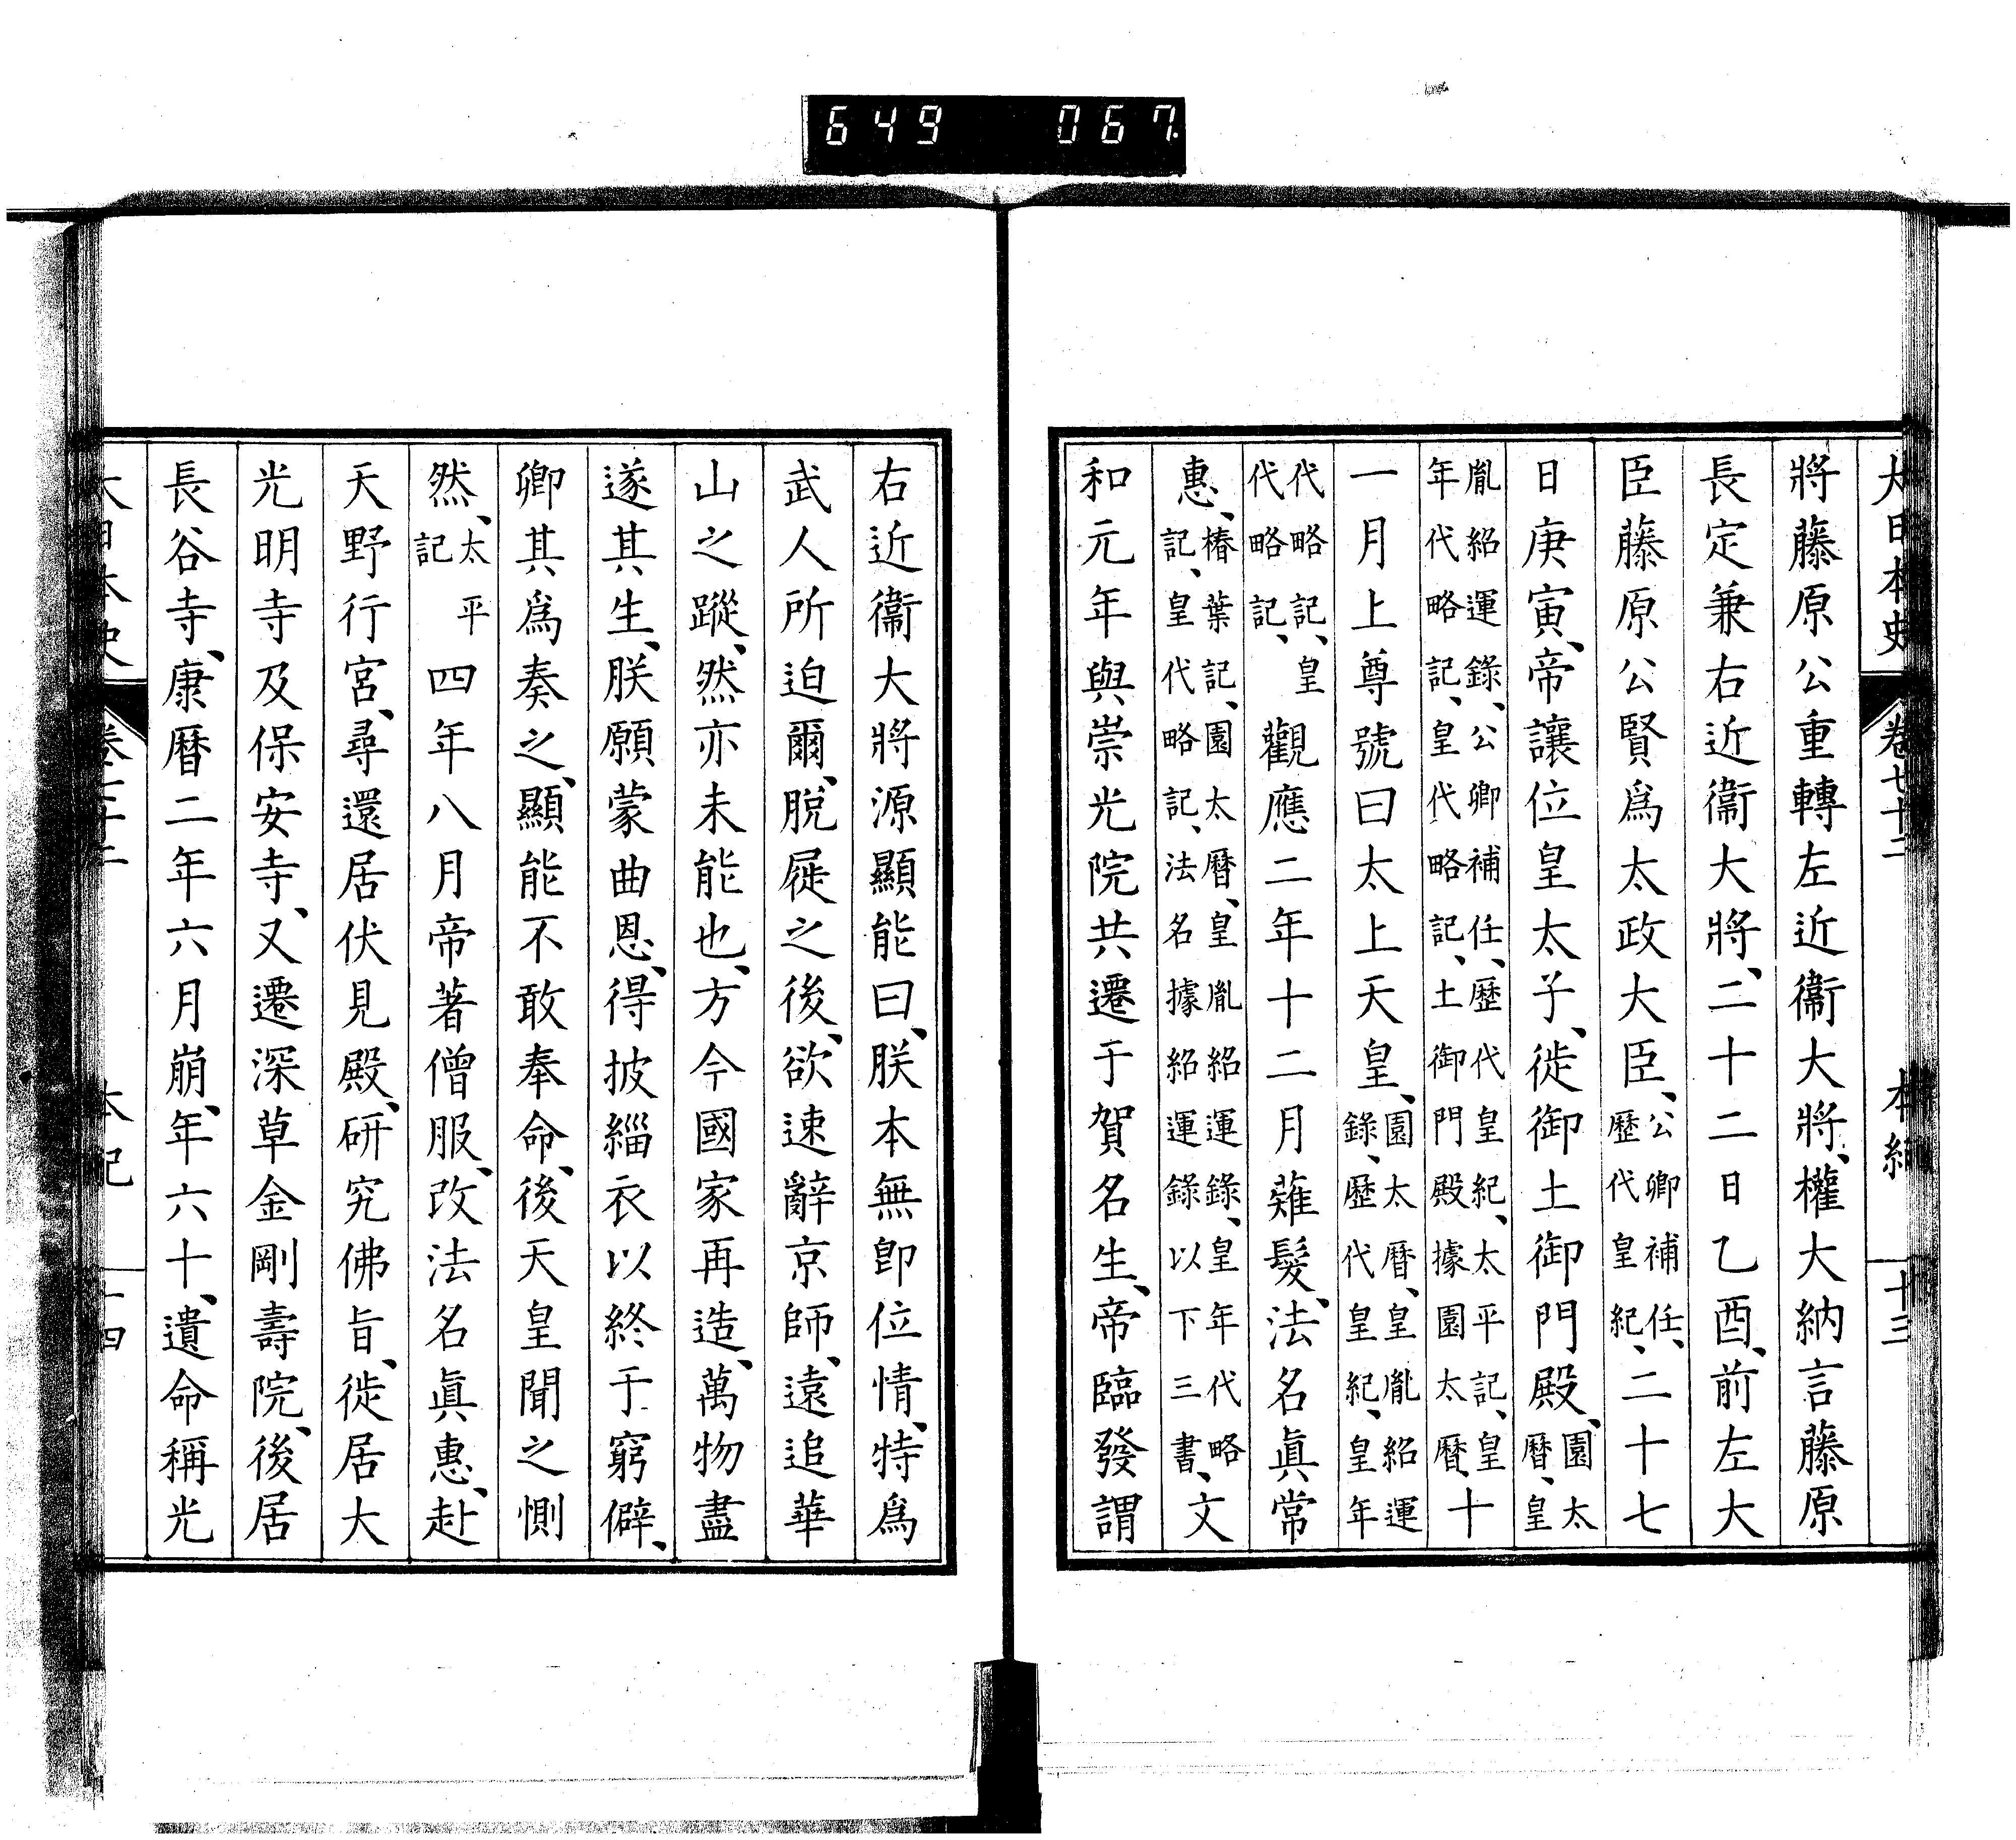 649 067
大日本史 卷七十二 本紀 十三
將藤原公重轉左近衞大將、權大納言藤原
長定兼右近衞大將、二十二日乙酉、前左大
臣藤原公賢爲太政大臣、公卿補任、歷代皇紀、二十七
日庚寅、帝讓位皇太子、徙御土御門殿、園太曆、皇
胤紹運錄、公卿補任、歷代皇紀、太平記、皇年代略記、皇代略記、土御門殿據園太曆、十
一月上尊號曰太上天皇、園太曆、皇胤紹運錄、歷代皇紀、皇年
代略記、皇代略記、觀應二年十二月薙髮、法名眞常
惠、椿葉記、園太曆、皇胤紹運錄、皇年代略記、皇代略記、法名據紹運錄以下三書、文
和元年與崇光院共遷于賀名生、帝臨發謂
右近衞大將源顯能曰、朕本無卽位情、特爲
武人所迫爾、脫屣之後、欲速辭京師、遠追華
山之蹤、然亦未能也、方今國家再造、萬物盡
遂其生、朕願蒙曲恩、得披緇衣以終于窮僻、
卿其爲奏之、顯能不敢奉命、後天皇聞之惻
然、太平記四年八月帝著僧服、改法名眞惠、赴
天野行宮、尋還居伏見殿、研究佛旨、徙居大
光明寺及保安寺、又遷深草金剛壽院、後居
長谷寺、康曆二年六月崩、年六十、遺命稱光
大日本史 卷七十二 本紀 十四